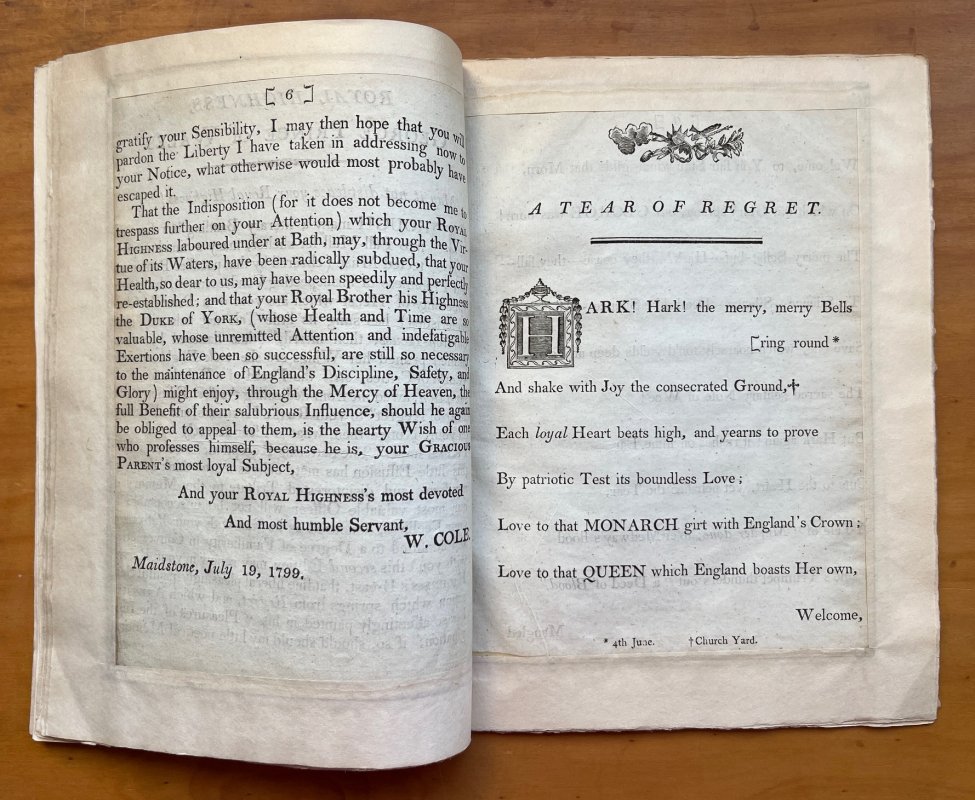 [ 6 ]
gratify your Sensibility, I may then hope that you will
pardon the Liberty I have taken in addressing now to
your Notice, what otherwise would most probably have
escaped it.
That the Indisposition (for it does not become me to
trespass further on your Attention) which your ROYAL
HIGHNESS laboured under at Bath, may, through the Vir-
tue of its Waters, have been radically subdued, that your
Health, so dear to us, may have been speedily and perfectly
re-established; and that your Royal Brother his Highness
the DUKE of YORK, (whose Health and Time are so
valuable, whose unremitted Attention and indefatigable
Exertions have been so successful, are still so necessary
to the maintenance of England's Discipline, Safety, and
Glory) might enjoy, through the Mercy of Heaven, the
full Benefit of their salubrious Influence, should he again
be obliged to appeal to them, is the hearty Wish of one
who professes himself, because he is, your GRACIOUS
PARENT's most loyal Subject,
And your ROYAL HIGHNESS's most devoted
And most humble Servant,
W. COLE.
Maidstone, July 19, 1799.
A TEAR OF REGRET.
HARK! Hark! the merry, merry Bells
[ring round *
And shake with Joy the consecrated Ground,†
Each loyal Heart beats high, and yearns to prove
By patriotic Test its boundless Love;
Love to that MONARCH girt with England's Crown;
Love to that QUEEN which England boasts Her own,
Welcome,
* 4th June. † Church Yard.